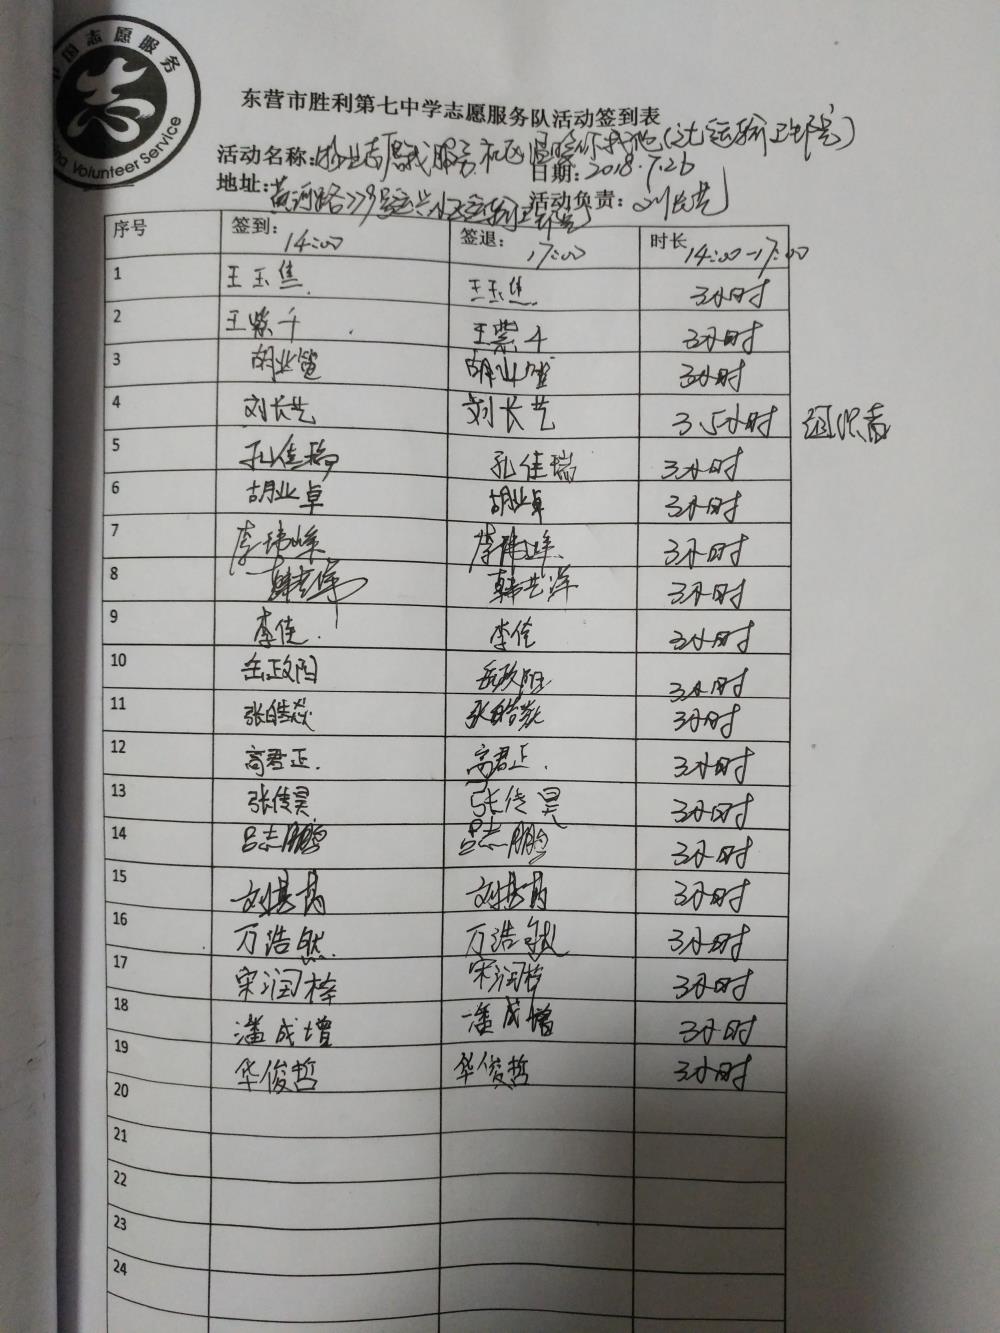 中国志愿服务
China Volunteer Service
东营市胜利第七中学志愿服务队活动签到表
活动名称: 志愿服务 社区 温暖你我他 (运输卫生院)
日期: 2018.7.26
地址: 黄河路 号运兴小区运输卫生院
活动负责: 刘长艺
序号 签到: 14:00 签退: 17:00 时长 14:00-17:00
1 王玉焦 王玉焦 3小时
2 王紫千 王紫千 3小时
3 胡业 胡业 3小时
4 刘长艺 刘长艺 3.5小时 组织者
5 孔佳瑞 孔佳瑞 3小时
6 胡业卓 胡业卓 3小时
7 李玮峰 李玮峰 3小时
8 韩艺洋 韩艺洋 3小时
9 李佳 李佳 3小时
10 岳政阳 岳政阳 3小时
11 张皓焱 张皓 3小时
12 高君正 高君正 3小时
13 张传昊 张传昊 3小时
14 吕志鹏 吕志鹏 3小时
15 刘 刘 3小时
16 万浩然 万浩然 3小时
17 宋润梓 宋润梓 3小时
18 潘成增 潘成增 3小时
19 华俊哲 华俊哲 3小时
20
21
22
23
24